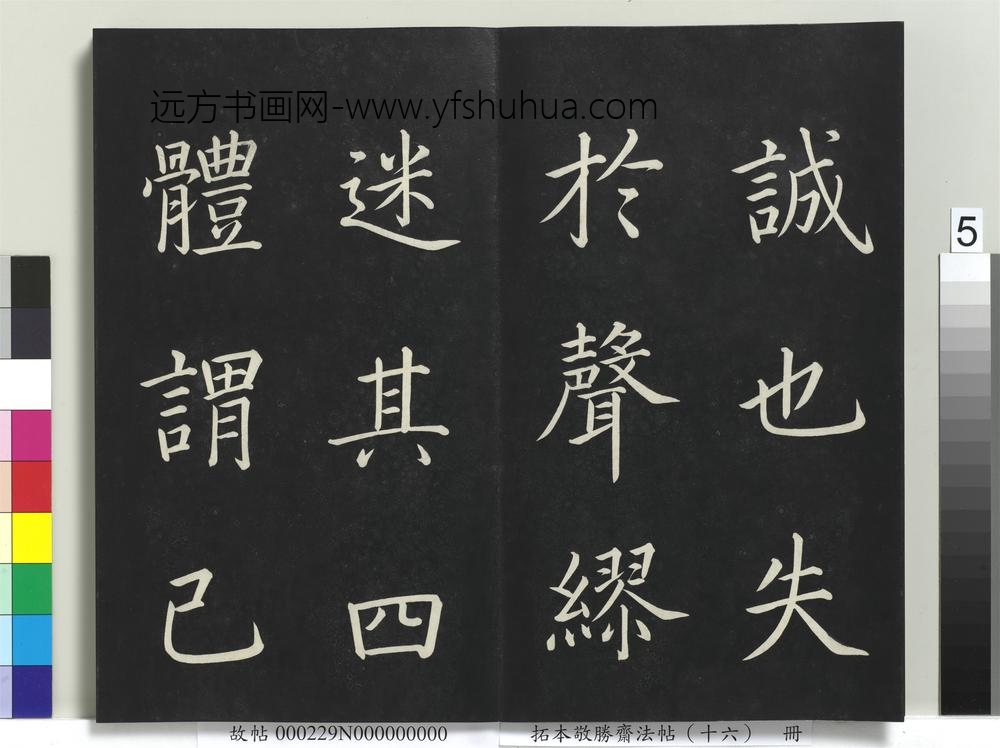 远方书画网-www.yfshuhua.com
誠也失
於聲繆
迷其四
體謂己
5
故帖 000229N000000000
拓本敬勝齋法帖（十六） 冊